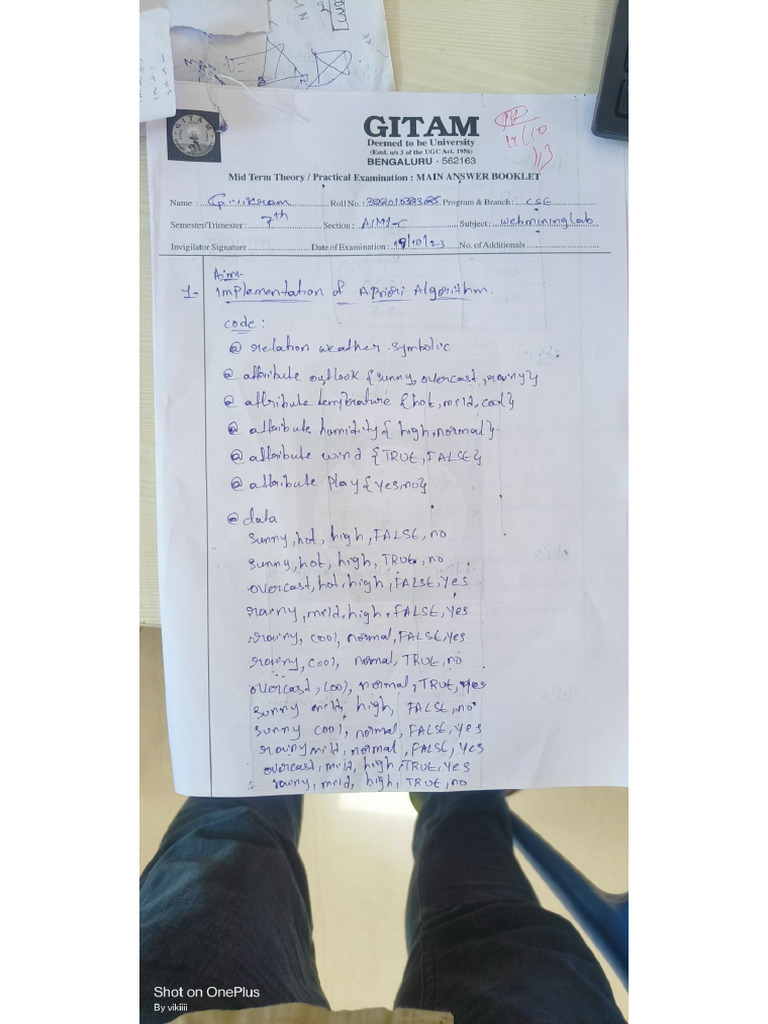 GITAM
Deemed to be University
(Estd. u/s 3 of the UGC Act. 1956)
BENGALURU - 562163
Mid Term Theory / Practical Examination : MAIN ANSWER BOOKLET
Name : Roll No. : Program & Branch : CSE
Semester/Trimester : 7th Section : AIML-C Subject : webmining lab
Invigilator Signature Date of Examination : 19/10/23 No. of Additionals
Aim:-
1- Implementation of Apriori Algorithm.
code :
@ relation weather.symbolic
@ attribute outlook {sunny, overcast, rainy}
@ attribute temperature {hot, mild, cool}
@ attribute humidity {high, normal}
@ attribute wind {TRUE, FALSE}
@ attribute play {yes, no}
@ data
sunny, hot, high, FALSE, no
sunny, hot, high, TRUE, no
overcast, hot, high, FALSE, yes
rainy, mild, high, FALSE, yes
rainy, cool, normal, FALSE, yes
rainy, cool, normal, TRUE, no
overcast, cool, normal, TRUE, yes
sunny mild, high, FALSE, no
sunny cool, normal, FALSE, yes
rainy mild, normal, FALSE, yes
overcast, mild, high, TRUE, yes
rainy, mild, high, TRUE, no
Shot on OnePlus
By vikiiii